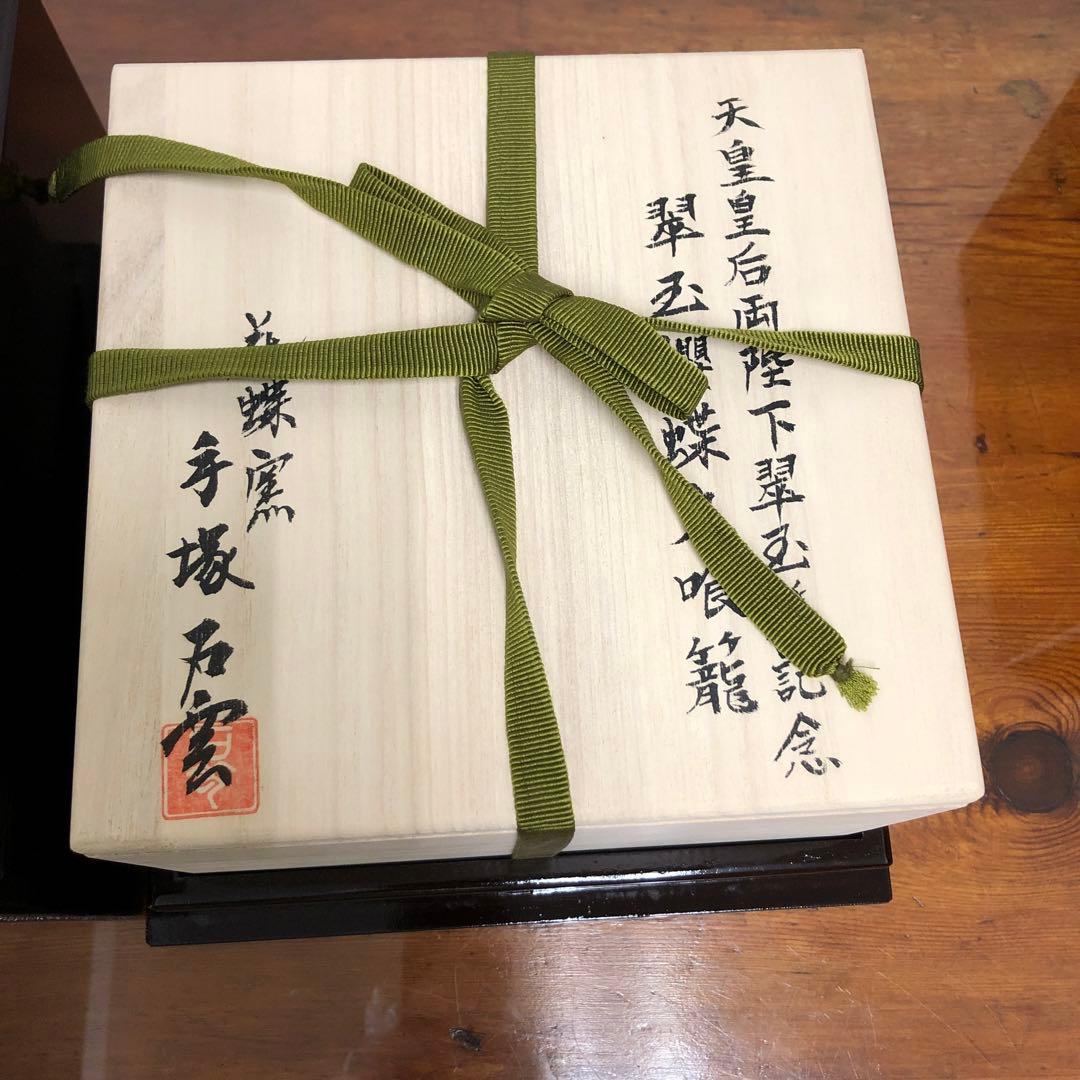 天皇皇后両陛下翠玉記念
翠玉蝶喰籠
蝶窯
手塚石雲